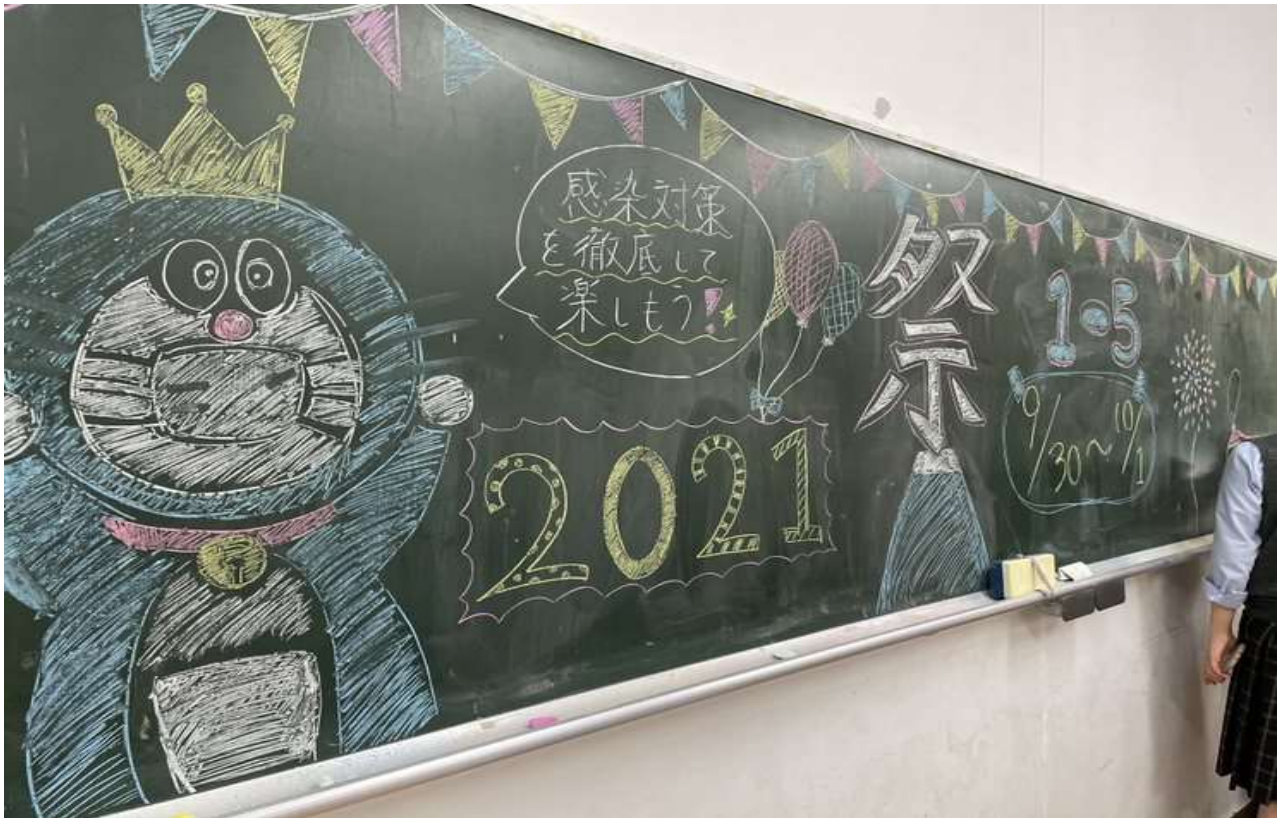 感染対策
を徹底して
楽しもう!!
2021
祭
1-5
9/30~10/1